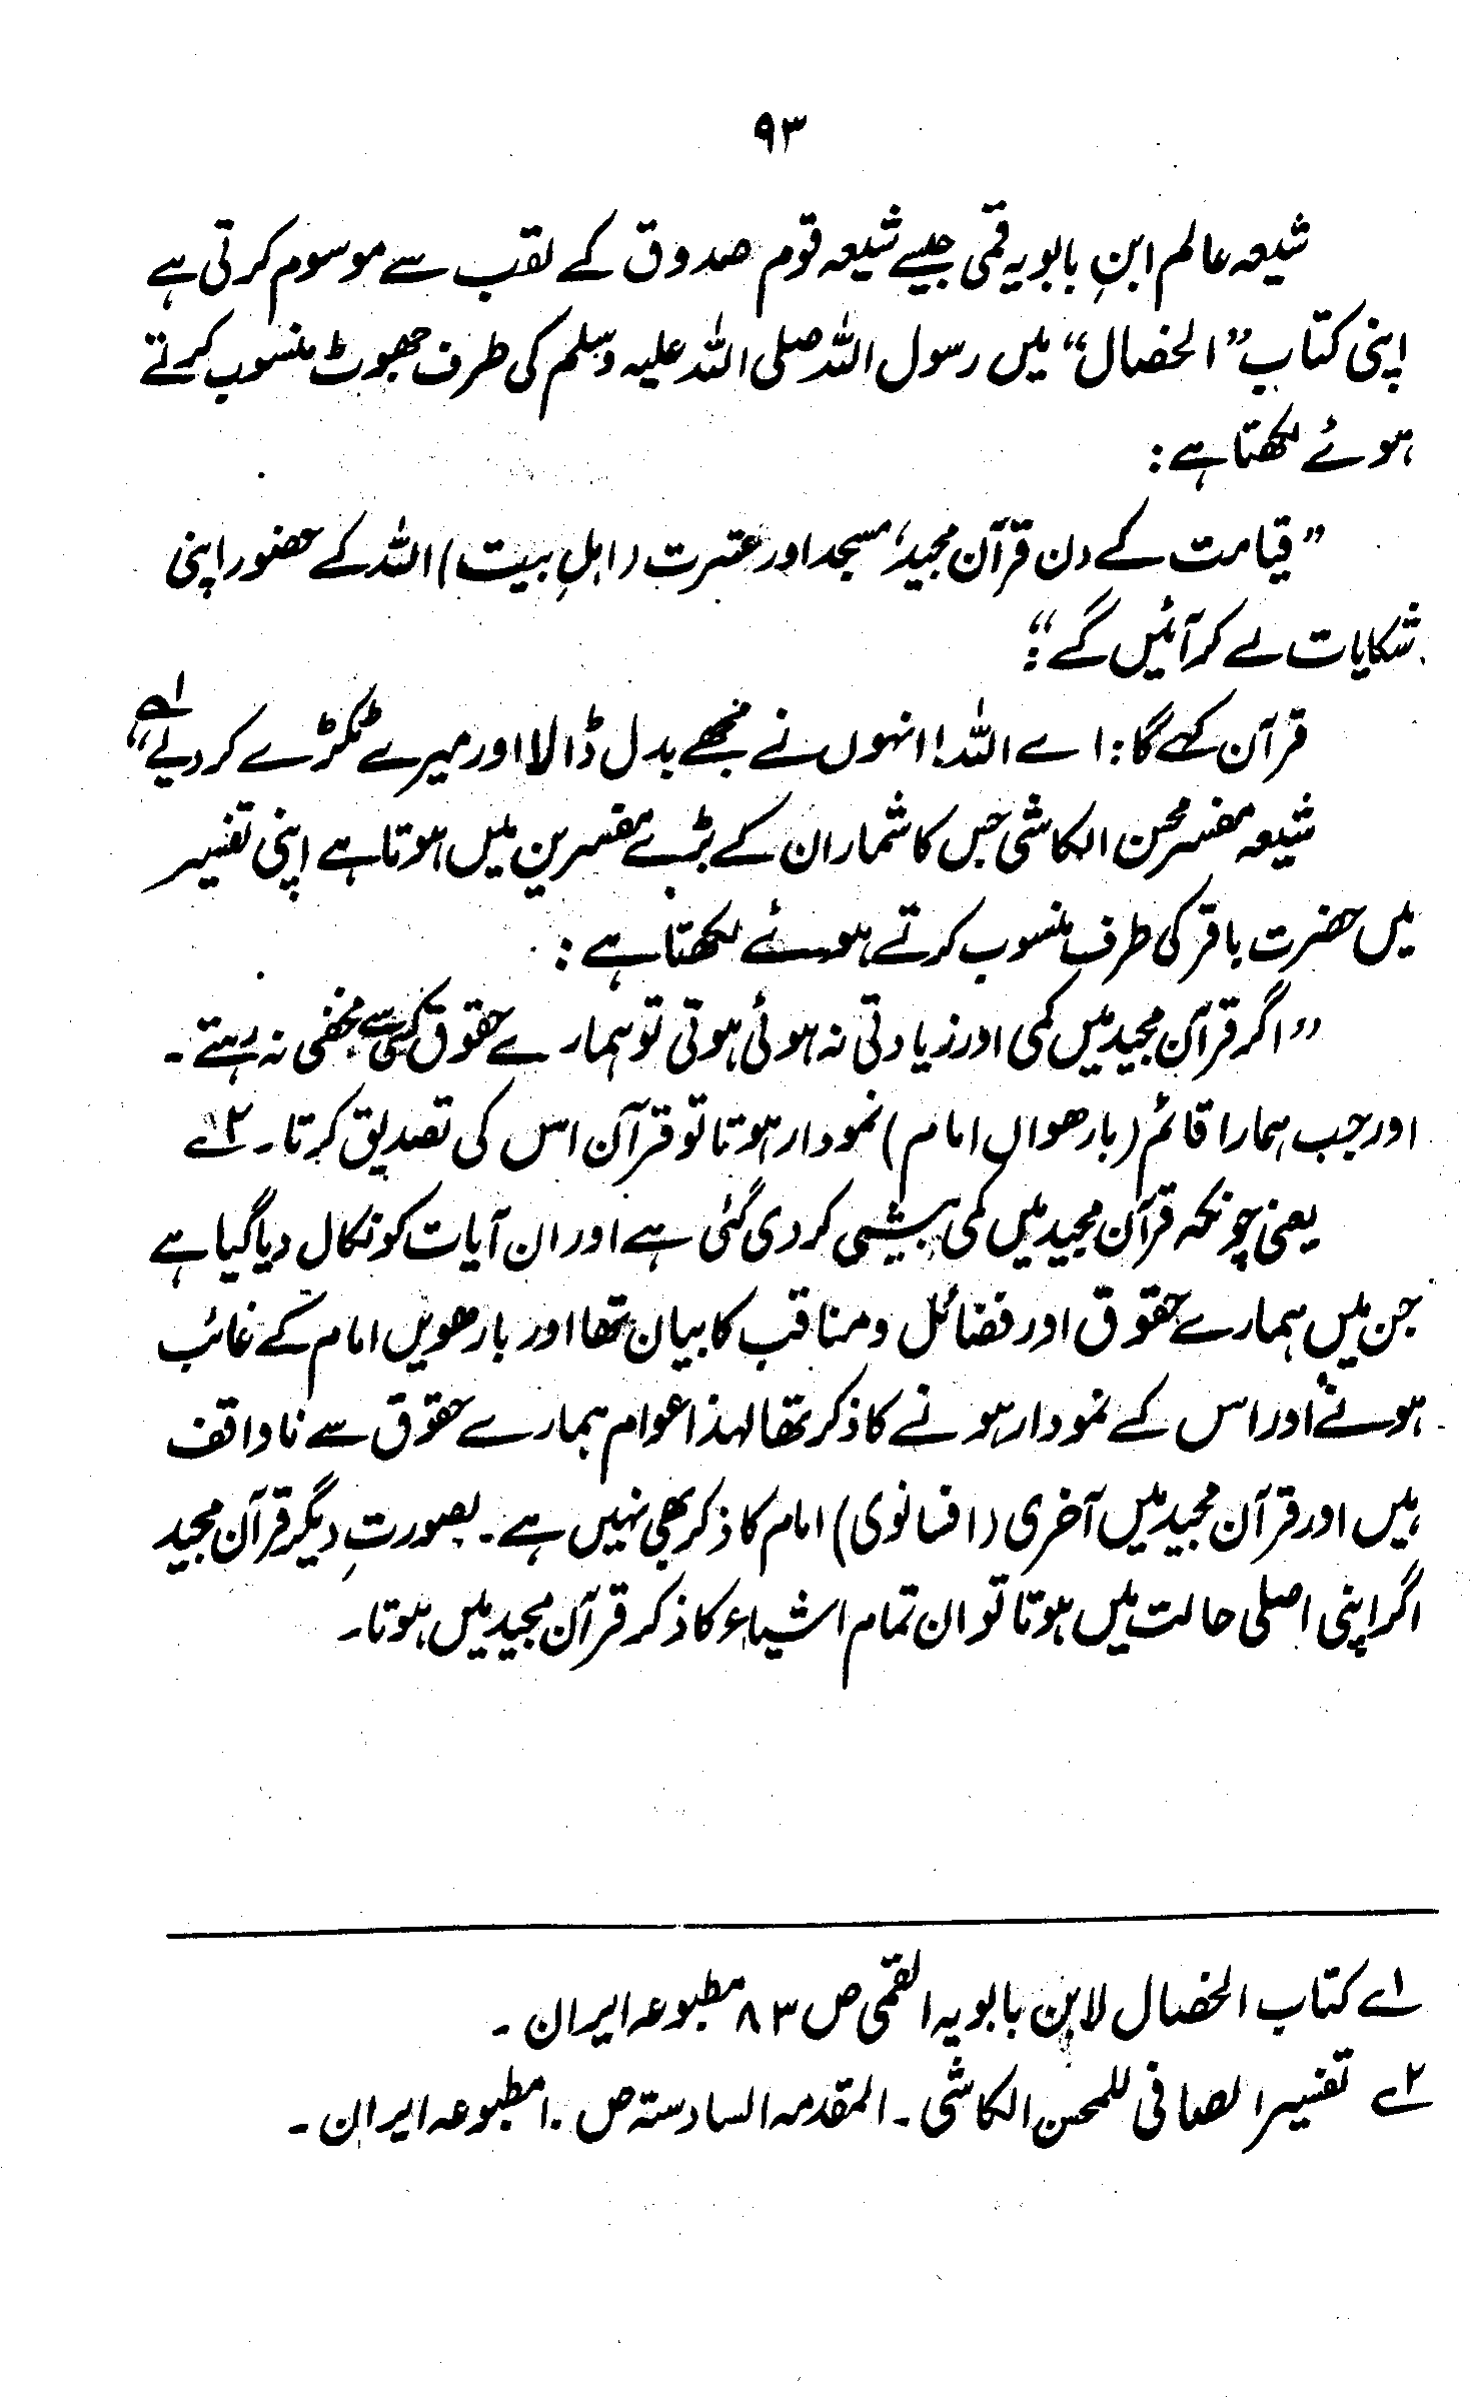 ۹۳
شیعہ عالم ابنِ بابویہ قمی جیسے شیعہ قوم صدوق کے لقب سے موسوم کرتی ہے
اپنی کتاب ”الخصال“ میں رسول اللہ صلی اللہ علیہ وسلم کی طرف جھوٹ منسوب کرتے
ہوئے لکھتا ہے :
”قیامت کے دن قرآن مجید، مسجد اور عترت (اہلِ بیت) اللہ کے حضور اپنی
شکایات لے کر آئیں گے“:
قرآن کہے گا : اے اللہ! انہوں نے مجھے بدل ڈالا اور میرے ٹکڑے کر دیے“ ۱ے
شیعہ مفسر محسن الکاشی جس کا شمار ان کے بڑے مفسرین میں ہوتا ہے اپنی تفسیر
میں حضرت باقر کی طرف منسوب کرتے ہوئے لکھتا ہے :
”اگر قرآن مجید میں کمی اور زیادتی نہ ہوئی ہوتی تو ہمارے حقوق کسی سے مخفی نہ رہتے ۔
اور جب ہمارا قائم (بارھواں امام) نمودار ہوتا تو قرآن اس کی تصدیق کرتا ۔ ۲ے
یعنی چونکہ قرآن مجید میں کمی بیشی کر دی گئی ہے اور ان آیات کو نکال دیا گیا ہے
جن میں ہمارے حقوق اور فضائل و مناقب کا بیان تھا اور بارھویں امام کے غائب
ہونے اور اس کے نمودار ہونے کا ذکر تھا لہذا عوام ہمارے حقوق سے ناواقف
ہیں اور قرآن مجید میں آخری (افسانوی) امام کا ذکر بھی نہیں ہے ۔ بصورتِ دیگر قرآن مجید
اگر اپنی اصلی حالت میں ہوتا تو ان تمام اشیاء کا ذکر قرآن مجید میں ہوتا ۔
۱ے کتاب الخصال لابن بابویہ القمی ص ۸۳ مطبوعہ ایران ۔
۲ے تفسیر الصافی للمحسن الکاشی ۔ المقدمہ السادستہ ص ۱۰ مطبوعہ ایران ۔